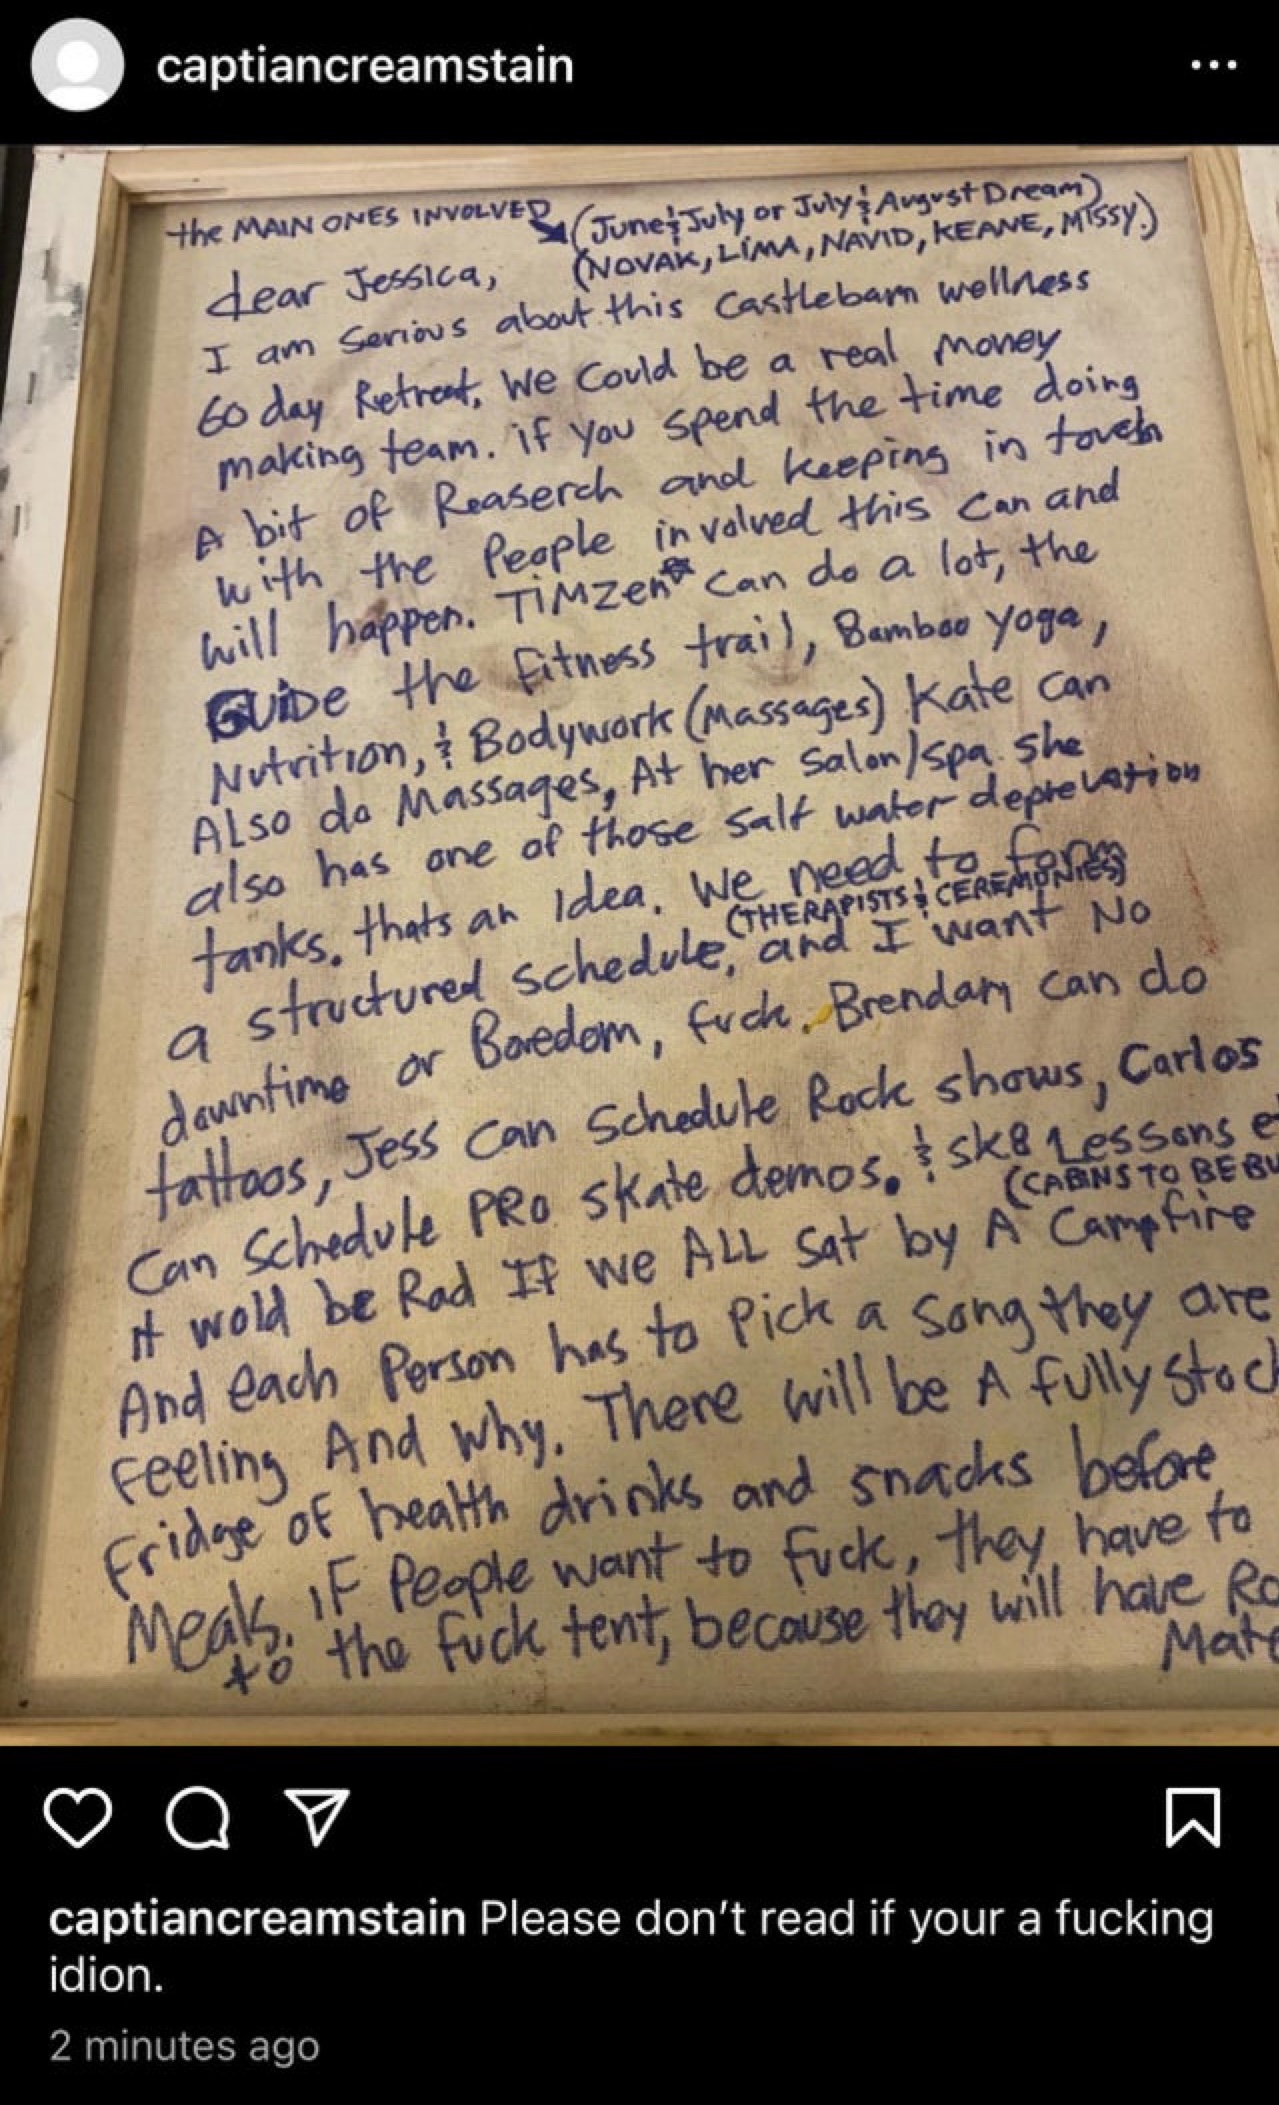 captiancreamstain
the MAIN ONES INVOLVED (June & July or July & August Dream)
(NOVAK, LIMA, NAVID, KEANE, MISSY.)
dear Jessica,
I am Serious about this Castlebarn wellness
60 day Retreat, We Could be a real money
making team. if you spend the time doing
A bit of Reaserch and keeping in touch
with the People involved this Can and
will happen. TiMZen can do a lot, the
GUiDe the fitness trail, Bamboo yoga,
Nutrition, & Bodywork (Massages) Kate can
ALso do Massages, At her Salon/spa. She
also has one of those salt water deprevation
tanks. thats an Idea. We need to form
(THERAPISTS & CEREMONIES)
a structured schedule, and I want No
downtime or Boredom, fuck. Brendan can do
tattoos, Jess can Schedule Rock shows, Carlos
Can Schedule PRO skate demos. & sk8 Lessons
(CABINS TO BE BU
it wold be Rad If we ALL Sat by A Campfire
And each Person has to Pick a Song they are
Feeling And why. There will be A fully stock
fridge of health drinks and snacks before
Meals. iF People want to fuck, they have to
to the fuck tent, because they will have Ro
Mate
captiancreamstain Please don't read if your a fucking
idion.
2 minutes ago